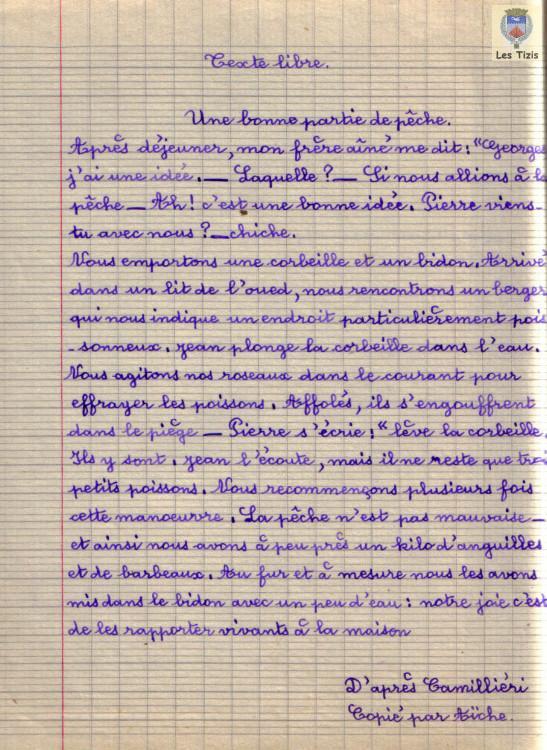 Les Tizis
Texte libre.
Une bonne partie de pêche.
Après déjeuner, mon frère aîné me dit : "Georges
j'ai une idée. — Laquelle ? — Si nous allions à la
pêche — Ah ! c'est une bonne idée. Pierre viens-
tu avec nous ? — chiche.
Nous emportons une corbeille et un bidon. Arrivé
dans un lit de l'oued, nous rencontrons un berger
qui nous indique un endroit particulièrement pois
-sonneux. Jean plonge la corbeille dans l'eau.
Nous agitons nos roseaux dans le courant pour
effrayer les poissons. Affolés, ils s'engouffrent
dans le piège — Pierre s'écrie : "lève la corbeille.
Ils y sont. Jean l'écoute, mais il ne reste que troi
petits poissons. Nous recommençons plusieurs fois
cette manoeurvre. La pêche n'est pas mauvaise —
et ainsi nous avons à peu près un kilo d'anguilles
et de barbeaux. Au fur et à mesure nous les avons
mis dans le bidon avec un peu d'eau : notre joie c'est
de les rapporter vivants à la maison
D'après Camilliéri
Copié par Aïche.